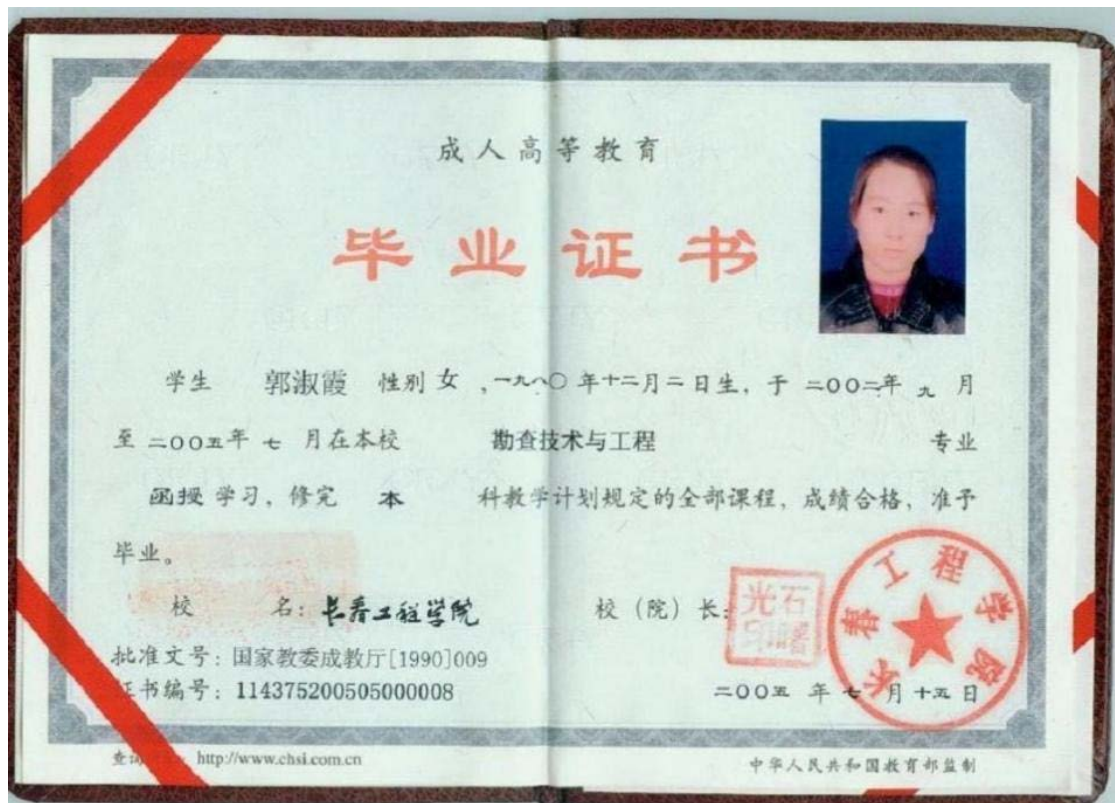 成人高等教育
毕业证书
学生 郭淑霞 性别 女 ,一九八〇 年十二月二日生, 于 二00二年 九 月
至 二00五年 七 月在本校 勘查技术与工程 专业
函授 学习, 修完 本 科教学计划规定的全部课程, 成绩合格, 准予
毕业。
校 名: 长春工程学院 校 (院) 长:
石曙光印
长春工程学院
批准文号: 国家教委成教厅[1990]009
证书编号: 114375200505000008
二00五 年 七 月 十五 日
http://www.chsi.com.cn
中华人民共和国教育部监制